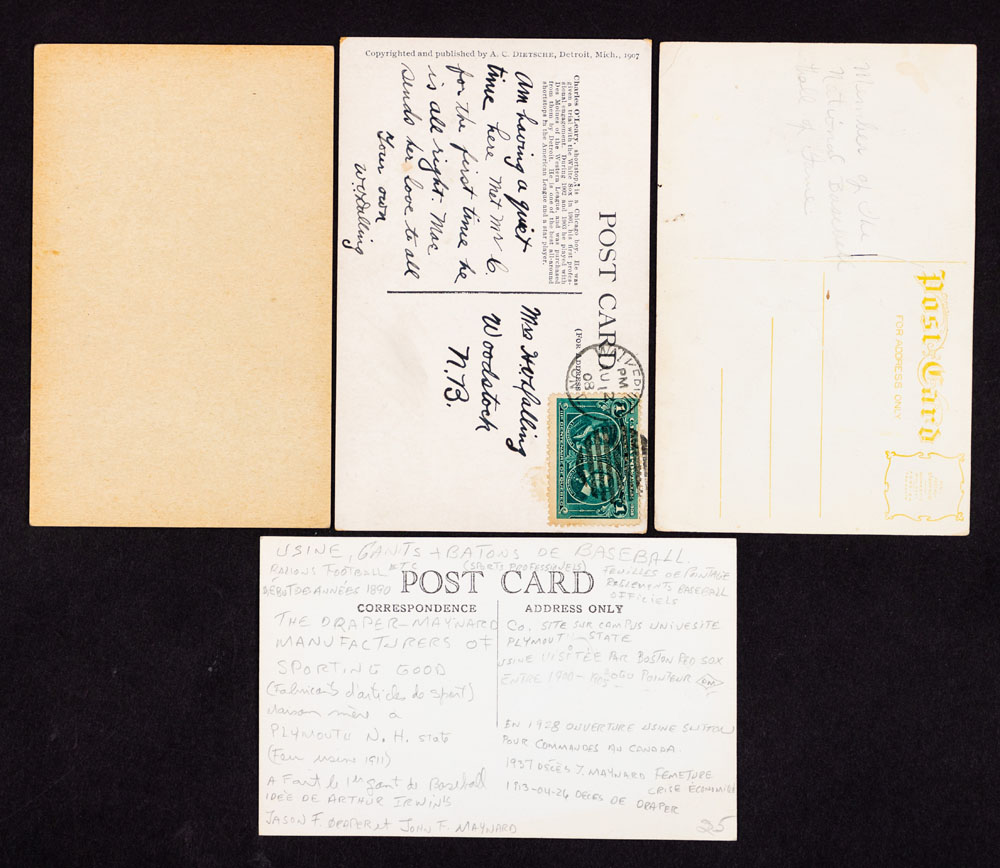 Copyrighted and published by A. C. DIETSCHE, Detroit, Mich., 1907
Charles O'Leary, shortstop, is a Chicago boy. He was
given a trial with the White Sox in 1901, his first profes-
sional engagement. During 1902 and 1903 he played with
Des Moines of the Western League, and was purchased
from them by Detroit. He is one of the best all-around
shortstops in the American League and a star player.
am having a quiet
time here Met Mr C.
for the first time he
is all right. Mac
sends her love to all
Your own
POST CARD
(FOR ADDRESS
Mrs
Woodstock
N.B.
PM
12
08
1
1
Member of the
National B
Hall of Fame
Post Card
FOR ADDRESS ONLY
USINE, GANTS + BATONS DE BASEBALL
BALLONS FOOTBALL ETC (SPORTS PROFESSIONELS)
FEUILLES DE POINTAGE
DÉBUT DE ANNÉES 1890
REGLEMENTS BASEBALL
OFFICIELS
POST CARD
CORRESPONDENCE
ADDRESS ONLY
THE DRAPER-MAYNARD
MANUFACTURERS OF
SPORTING GOOD
(Fabricants d'articles de sport)
Maison mère a
PLYMOUTH N.H. state
usine 1911)
A Fait le 1er gant de Baseball
IDÉE DE ARTHUR IRWIN'S
JASON F. DRAPER et JOHN F. MAYNARD
CO. SITE SUR CAMPUS UNIVESITE
PLYMOUTH STATE
USINE VISITÉE PAR BOSTON RED SOX
ENTRE 1900-
EN 1928 OUVERTURE USINE SUTTON
POUR COMMANDES AU CANADA.
1937 DÉCÈS J. MAYNARD FEMETURE
CRISE ECONOMIE
1913-04-26 DECES DE DRAPER
25